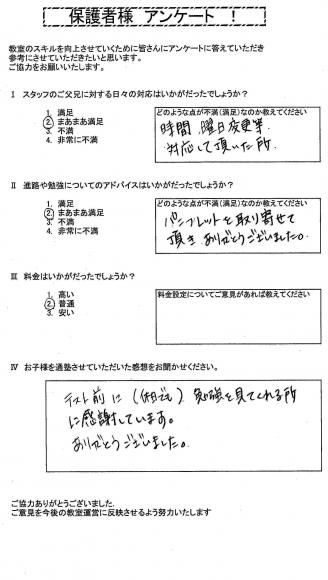 保護者様 アンケート ！
教室のスキルを向上させていくために皆さんにアンケートに答えていただき
参考にさせていただきたいと思います。
ご協力をお願いいたします。
Ⅰ スタッフのご父兄に対する日々の対応はいかがだったでしょうか？
1. 満足
2. まあまあ満足
3. 不満
4. 非常に不満
どのような点が不満(満足)なのか教えてください
時間、曜日変更等
対応して頂いた所。
Ⅱ 進路や勉強についてのアドバイスはいかがだったでしょうか？
1. 満足
2. まあまあ満足
3. 不満
4. 非常に不満
どのような点が不満(満足)なのか教えてください
パンフレットを取り寄せて
頂き、ありがとうございました。
Ⅲ 料金はいかがだったでしょうか？
1. 高い
2. 普通
3. 安い
料金設定についてご意見があれば教えてください
Ⅳ お子様を通塾させていただいた感想をお聞かせください。
テスト前に（休日でも）勉強を見てくれる所
に感謝しています。
ありがとうございました。
ご協力ありがとうございました。
ご意見を今後の教室運営に反映させるよう努力いたします